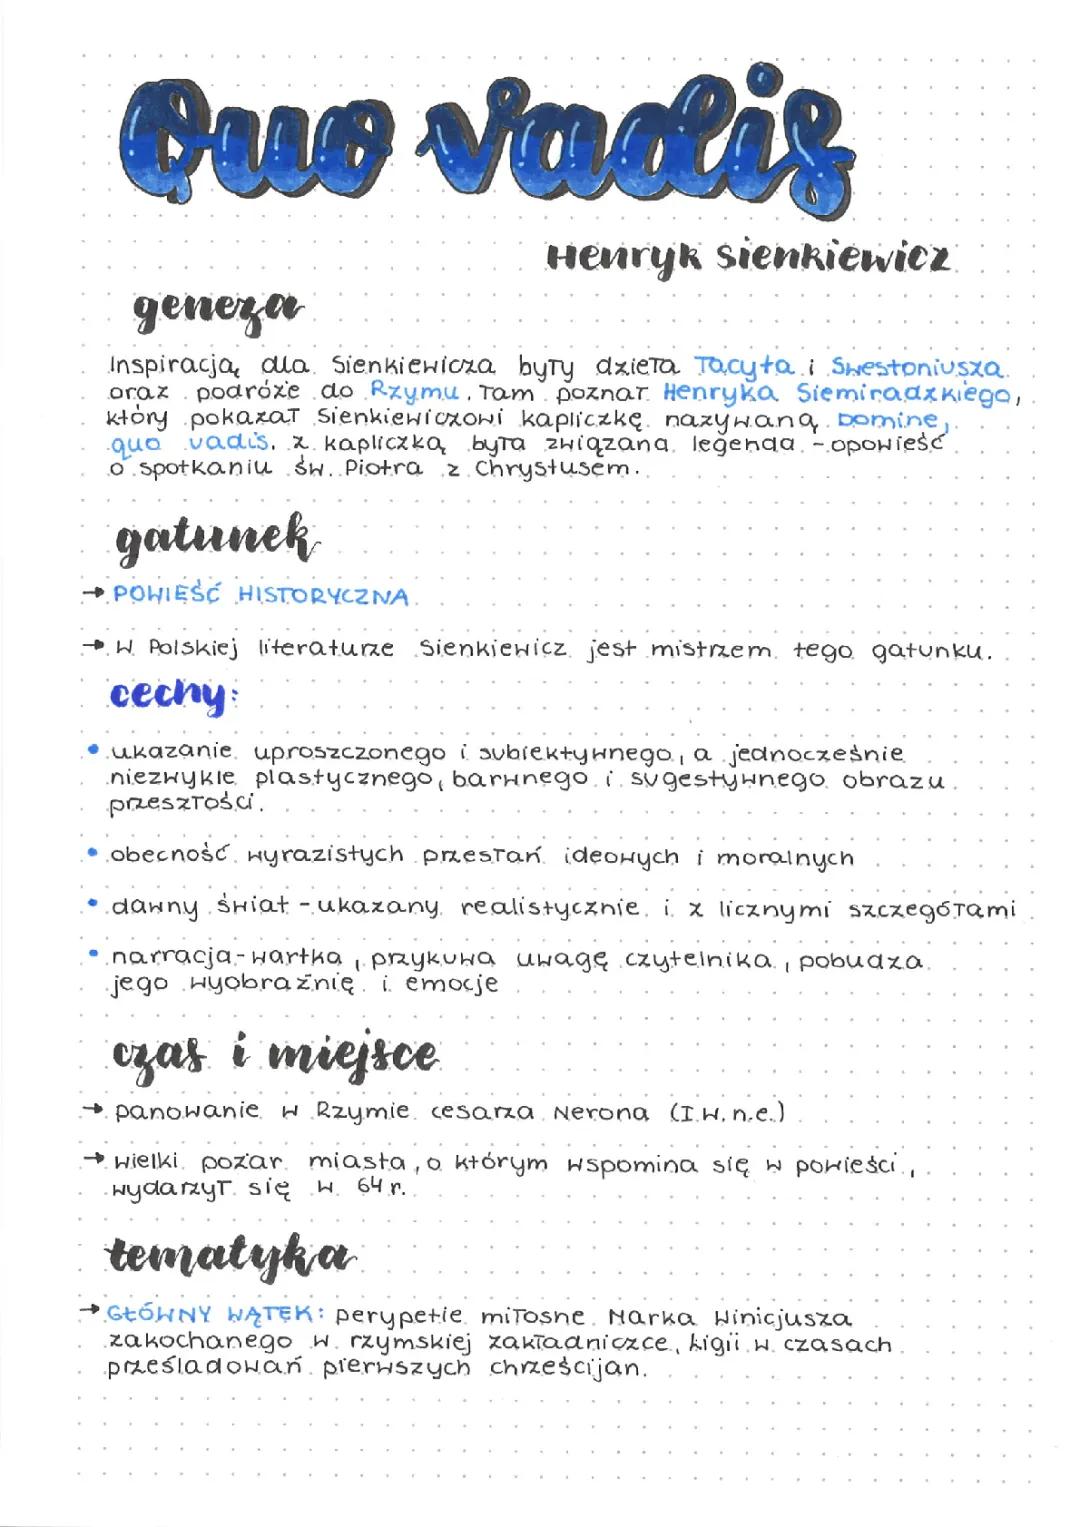 Quo vadis
Henryk Sienkiewicz
geneza
Inspiracją dla Sienkiewicza były dzieła Tacyta i Swestoniusza
oraz podróże do Rzymu. Tam poznał Henryka Siemiradzkiego,
który pokazał Sienkiewiczowi kapliczkę nazywaną Domine,
quo vadis. Z kapliczką była związana legenda - opowieść
o spotkaniu św. Piotra z Chrystusem.
gatunek
→ POWIEŚĆ HISTORYCZNA
→ W Polskiej literaturze Sienkiewicz jest mistrzem tego gatunku.
cechy:
• ukazanie uproszczonego i subiektywnego, a jednocześnie
niezwykle plastycznego, barwnego i sugestywnego obrazu
przeszłości.
• obecność wyrazistych przesłań ideowych i moralnych
• dawny świat - ukazany realistycznie i z licznymi szczegółami
• narracja - wartka, przykuwa uwagę czytelnika, pobudza
jego wyobraźnię i emocje
czas i miejsce
→ panowanie w Rzymie cesarza Nerona (I w. n.e.)
→ wielki pożar miasta, o którym wspomina się w powieści,
wydarzył się w 64 r.
tematyka
→ GŁÓWNY WĄTEK: perypetie miłosne Marka Winicjusza
zakochanego w rzymskiej zakładniczce, Ligii w czasach
prześladowań pierwszych chrześcijan.